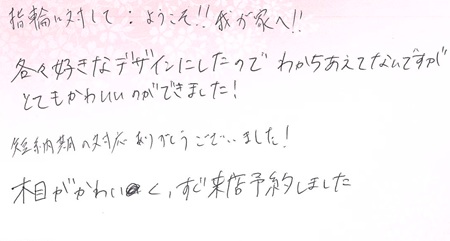 指輪に対して：ようこそ!!我が家へ!!
各々好きなデザインにしたので わかちあえてないですが
とてもかわいいのができました!
短納期の対応ありがとうございました!
木目がかわいく、すぐ来店予約しました